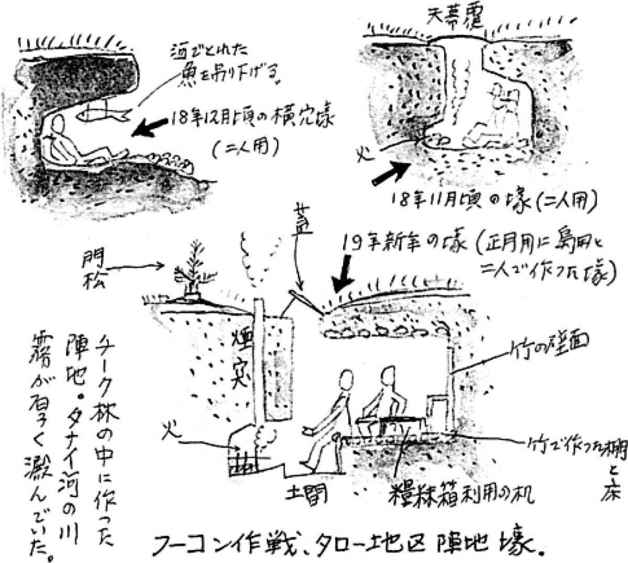 河でとれた
魚を吊り下げる。
18年12月頃の横穴壕
(二人用)
天幕覆
火
18年11月頃の壕(二人用)
蓋
19年新年の壕(正月用に島田と
二人で作った壕)
門松
煙突
竹の壁面
火
竹で作った棚と床
土間
糧秣箱利用の机
チーク林の中に作った
陣地。タナイ河の川
霧が白く澱んでいた。
フーコン作戦、タロー地区陣地壕。